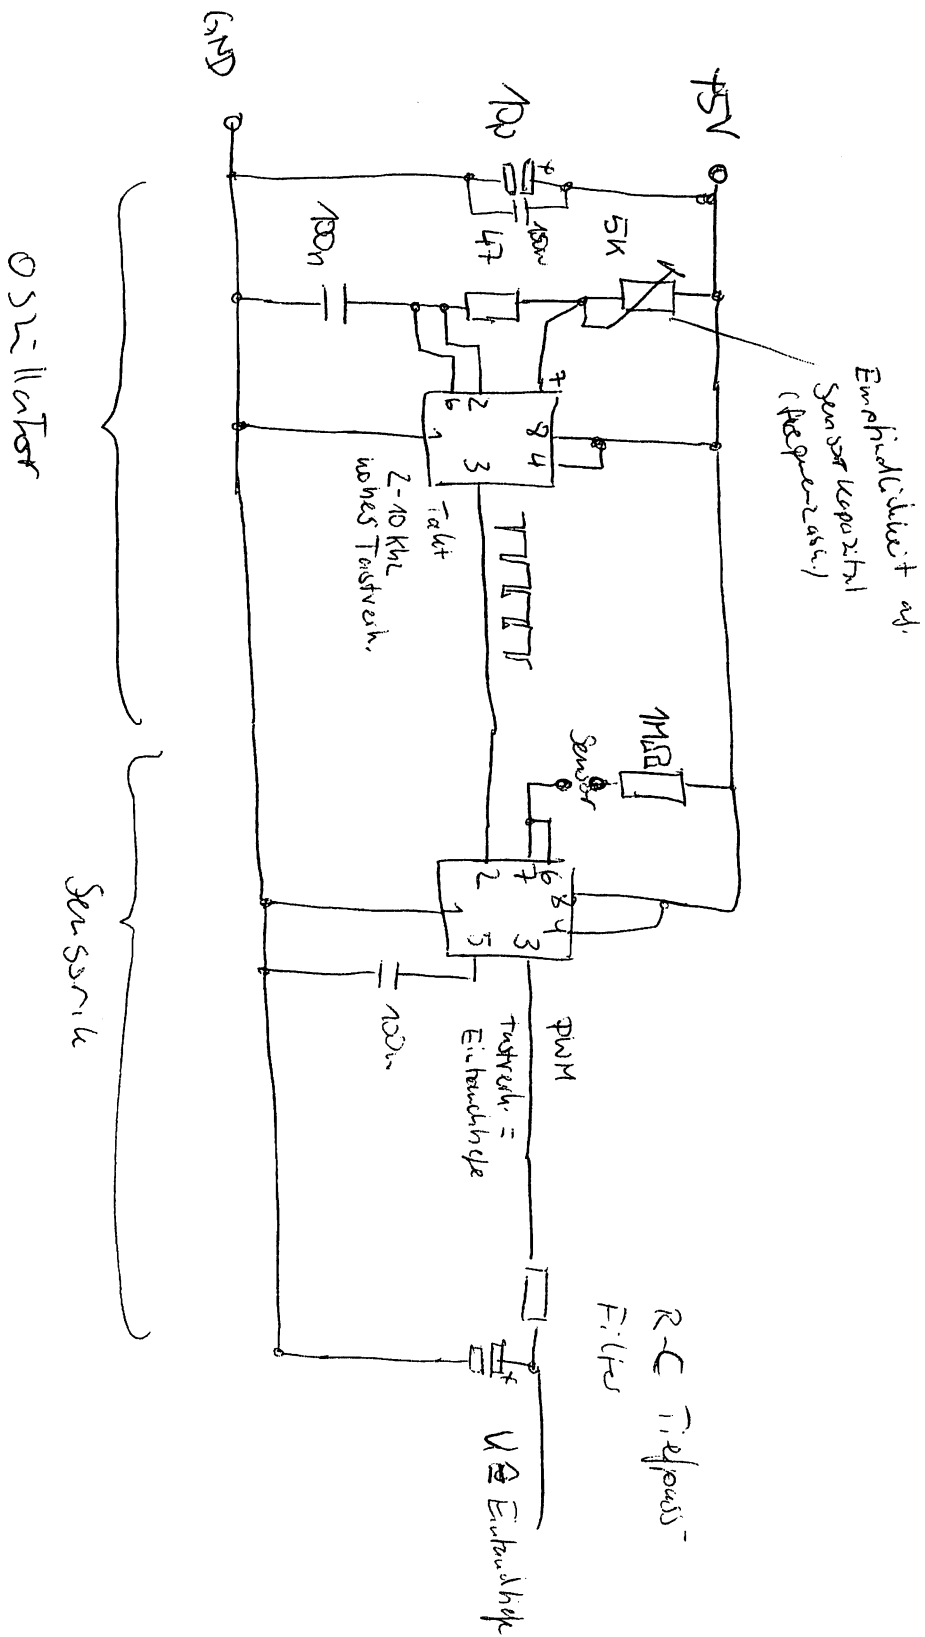 +5V
GND
10µ
100n
5K
47
100n
Empfindlichkeit
Sensorkapazität
7
6
2
8
4
1
3
Takt
2-10 Khz
hohes Tastverh.
1MΩ
Sensor
2
7
6
8
4
1
5
3
100n
PWM
Tastverh. =
Eintauchtiefe
R-C Tiefpass-
Filter
+
+
U ≙ Eintauchtiefe
Oszillator
Sensorik